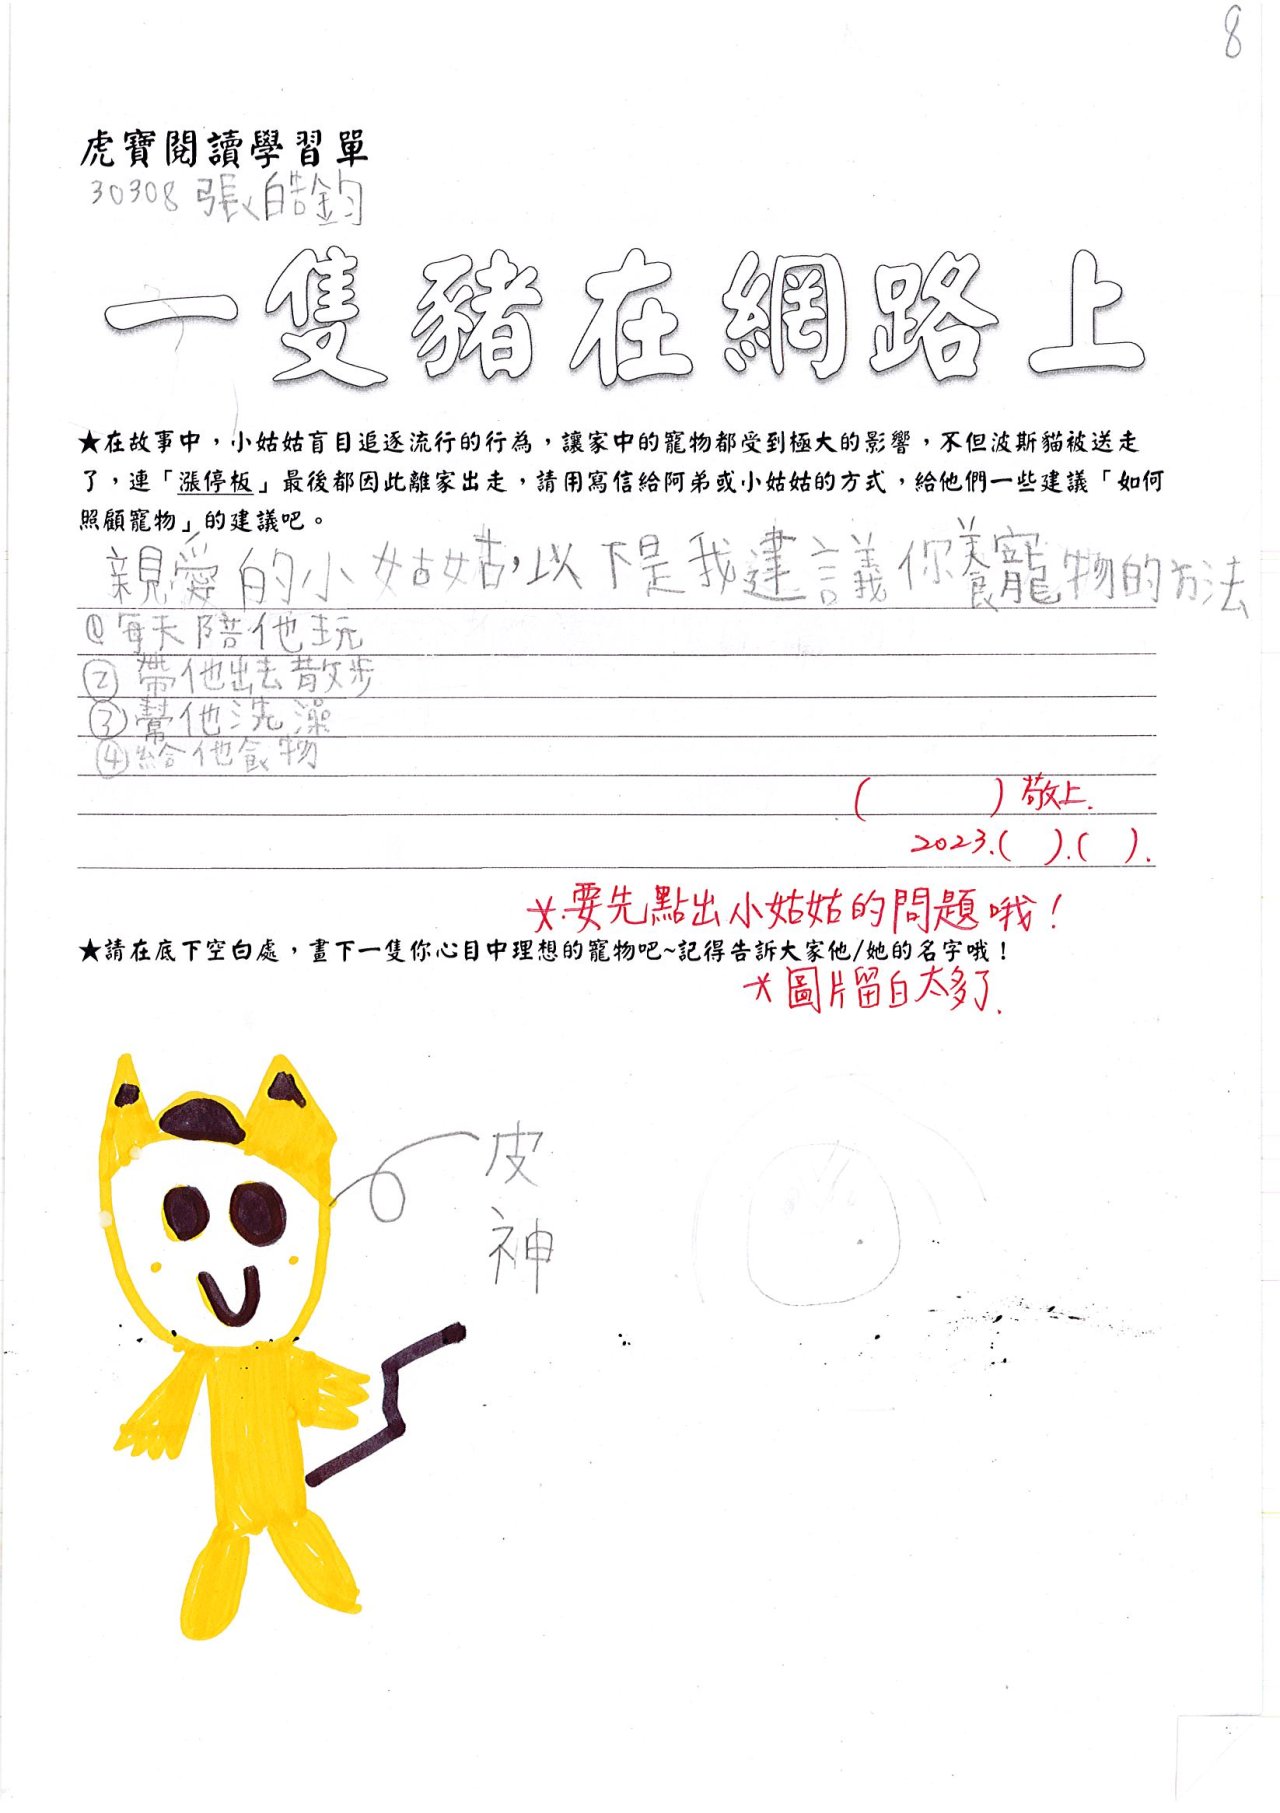 8
虎寶閱讀學習單
30308 張皓鈞
一隻豬在網路上
★在故事中，小姑姑盲目追逐流行的行為，讓家中的寵物都受到極大的影響，不但波斯貓被送走
了，連「漲停板」最後都因此離家出走，請用寫信給阿弟或小姑姑的方式，給他們一些建議「如何
照顧寵物」的建議吧。
親愛的小姑姑，以下是我建議你養寵物的方法
①每天陪他玩
②帶他出去散步
③幫他洗澡
④給他食物
(　　　)敬上.
2023.(　).(　).
*要先點出小姑姑的問題哦！
★請在底下空白處，畫下一隻你心目中理想的寵物吧~記得告訴大家他/她的名字哦！
*圖片留白太多了.
皮神